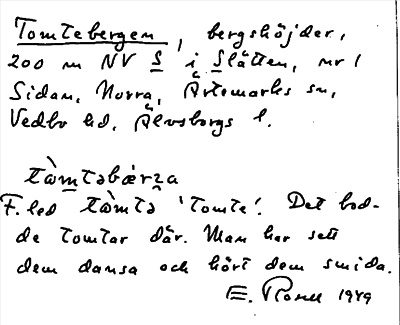 Tomtebergen, bergshöjder,
200 m NV S i Slätten, nr 1
Sidan, Norra, Ärtemarks sn,
Vedbo hd, Älvsborgs l.
tòmtəbærza
F. led tòmtə 'tomte'. Det bod-
de tomtar där. Man har sett
dem dansa och hört dem smida.
E. 1949